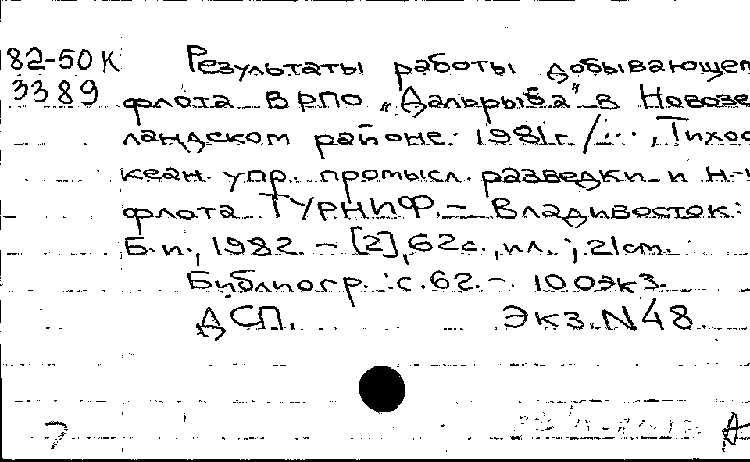 82-50К Результаты работы добывающег
3389 флота ВРПО "Дальрыба" в Новозе
ландском районе: 1981г /..., Тихоо
кеан. упр. промысл. разведки и н-и
флота ТУРНИФ. - Владивосток:
Б.и., 1982. - [2], 62с., ил.; 21см.
Библиогр.: с. 62. - 100экз.
ДСП. Экз. N48.